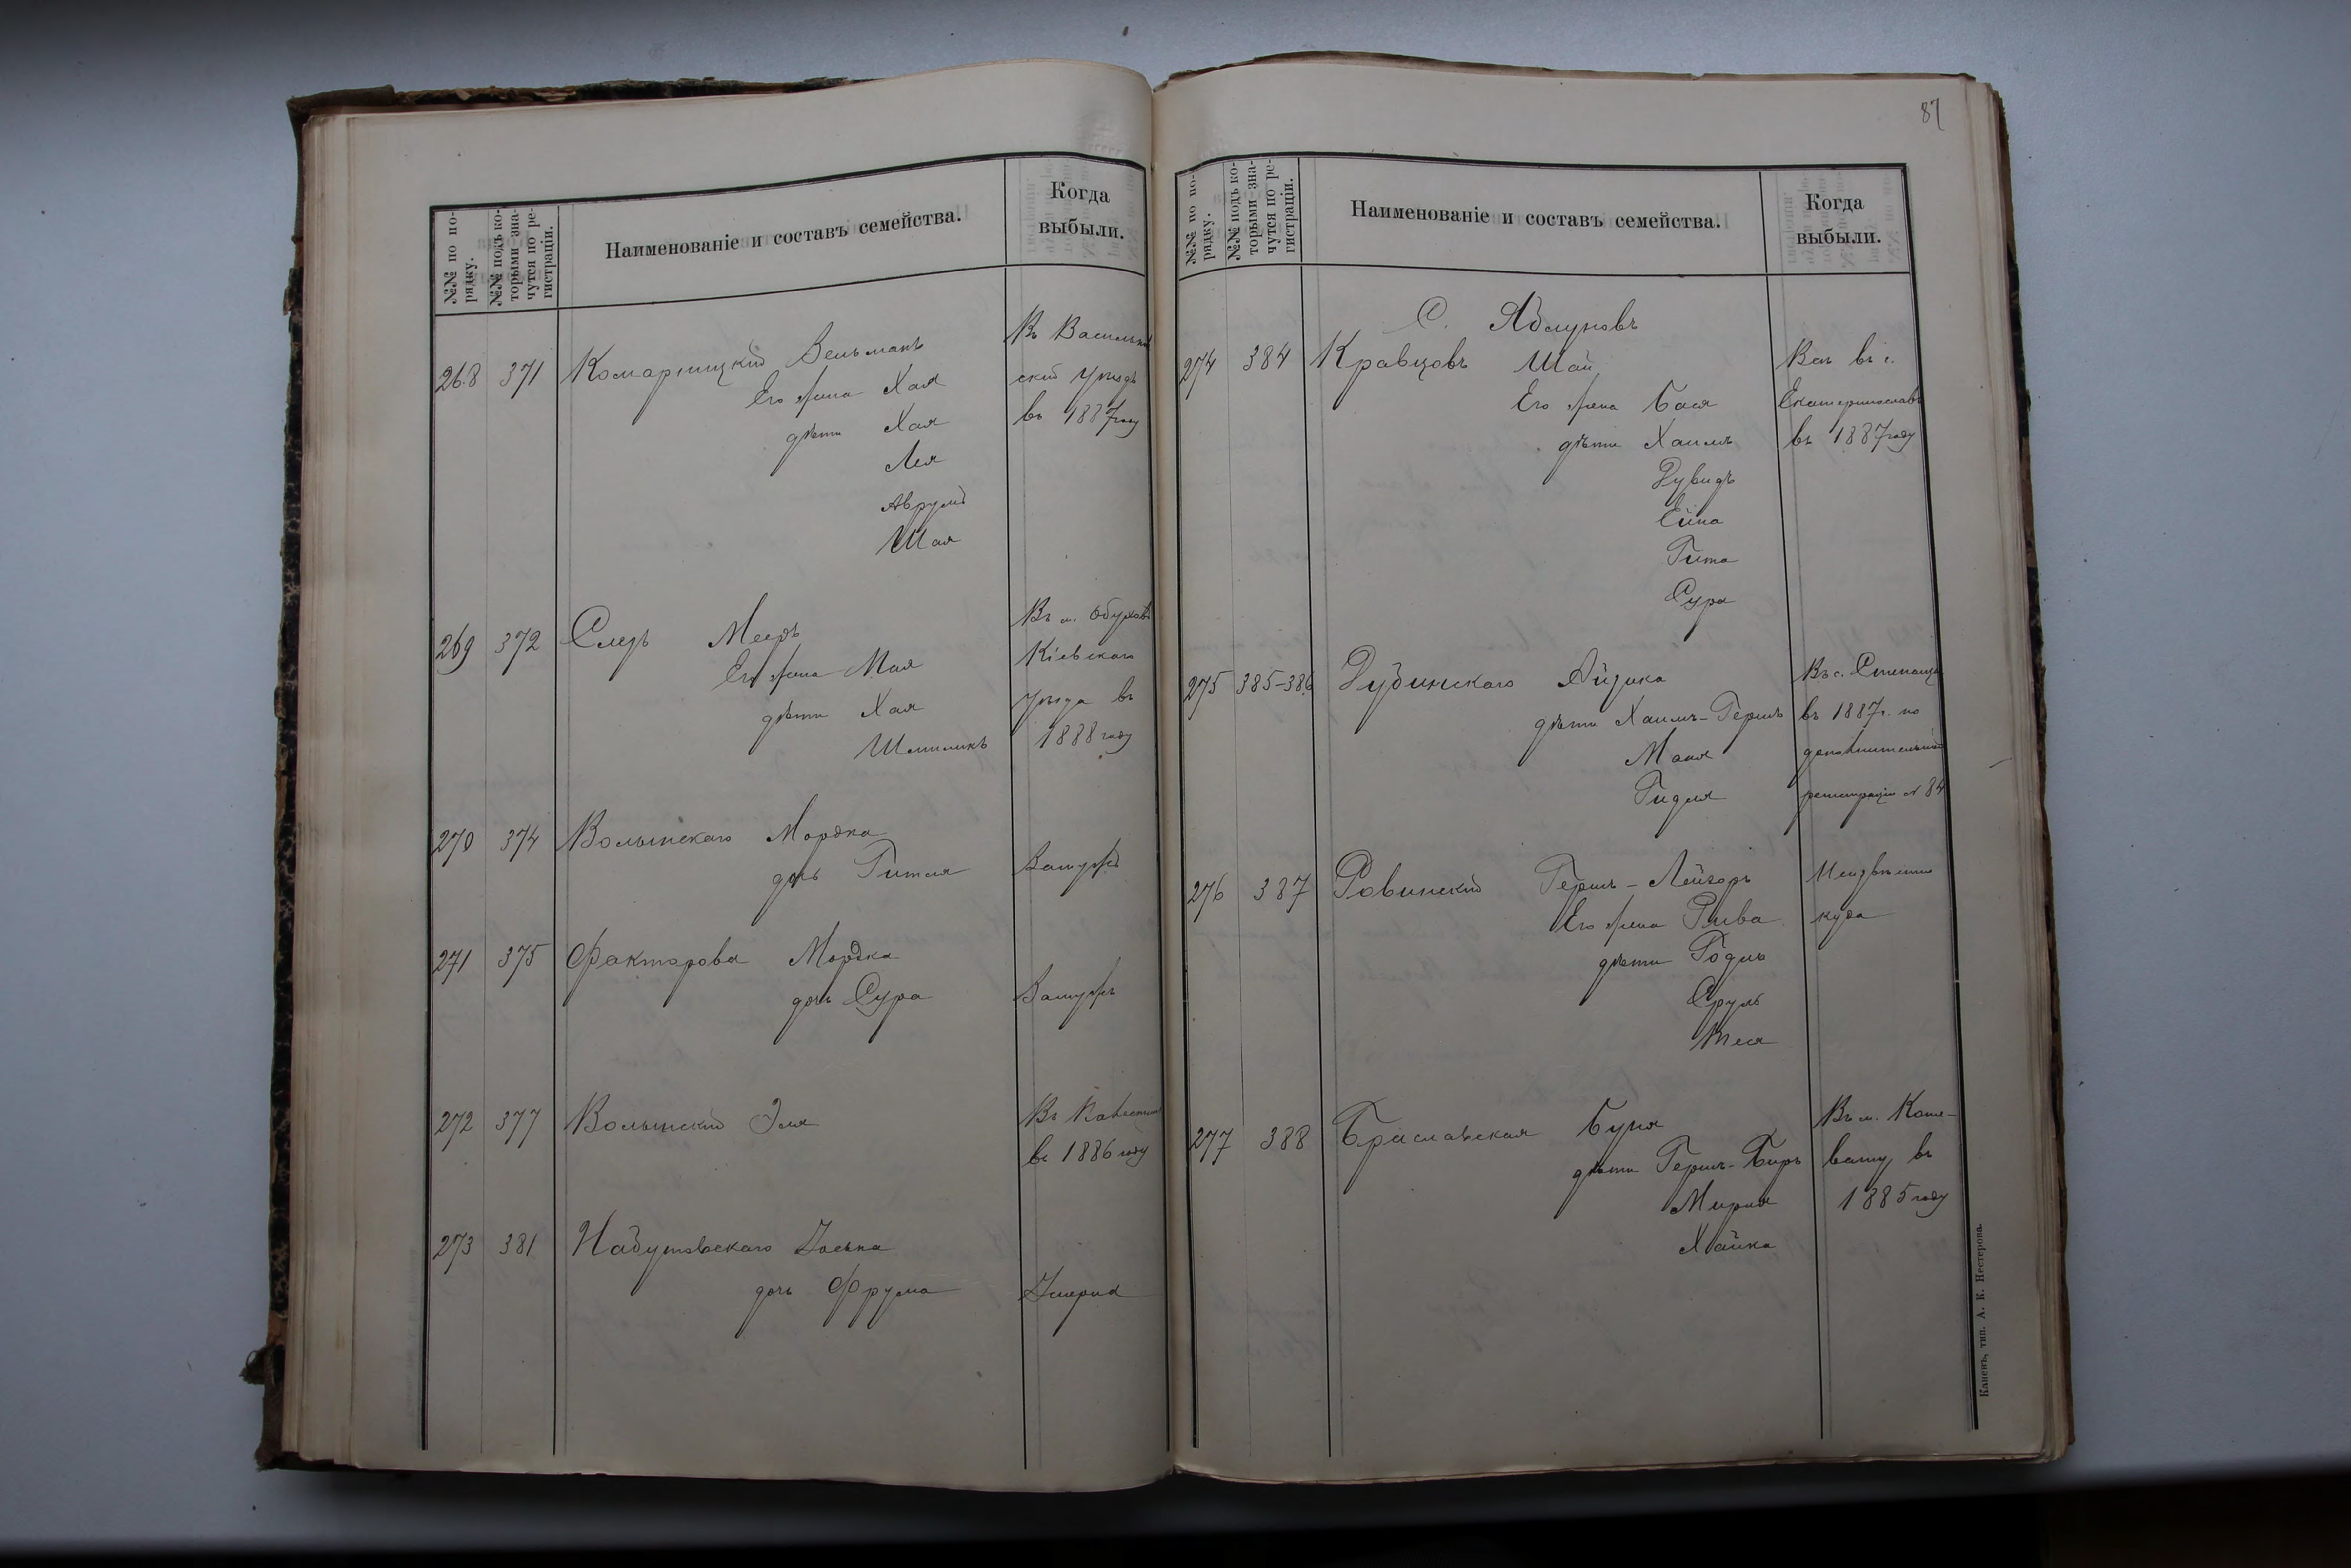 №№ по порядку.
№№ подъ которыми значутся по регистраціи.
Наименованіе и составъ семейства.
Когда выбыли.
268 371 Комарницкій Вельманъ
Его жена Хая
дѣти Хая
Лея
Аврумъ
Шая
Въ Васильковскій уѣздъ
въ 1887 году
269 372 Слезъ Мееръ
Его жена Мая
дѣти Хая
Шмиликъ
Въ м. Обуховъ
Кіевскаго
уѣзда въ
1888 году
270 374 Волынскаго Мордка
дочь Гитля
Замужъ
271 375 Факторова Мордка
дочь Сура
Замужъ
272 377 Волынскій Эля
Въ
въ 1886 году
273 381 Набутовскаго Іоська
дочь Фрума
Умерла
87
№№ по порядку.
№№ подъ которыми значутся по регистраціи.
Наименованіе и составъ семейства.
Когда выбыли.
С. Яблуновъ
274 384 Кравцовъ Шая
Его жена Бася
дѣти Хаимъ
Дувидъ
Ейна
Гита
Сура
въ г.
Екатеринославъ
въ 1887 году
275 385-386 Дубинскаго Айзика
дѣти Хаимъ-Гершъ
Маня
Гидля
Въ с. Степанцы
въ 1887 г. по
дополнительной
регистраціи № 84
276 387 Ровинскій Гершъ-Лейзоръ
Его жена Рива
дѣти Годль
Сруль
Неизвѣстно
куда
277 388 Браславская Буня
дѣти Гершъ-Беръ
Мирля
Хайка
Въ м. Кошевату въ
1885 году
Каневъ, тип. А. К. Нестерова.